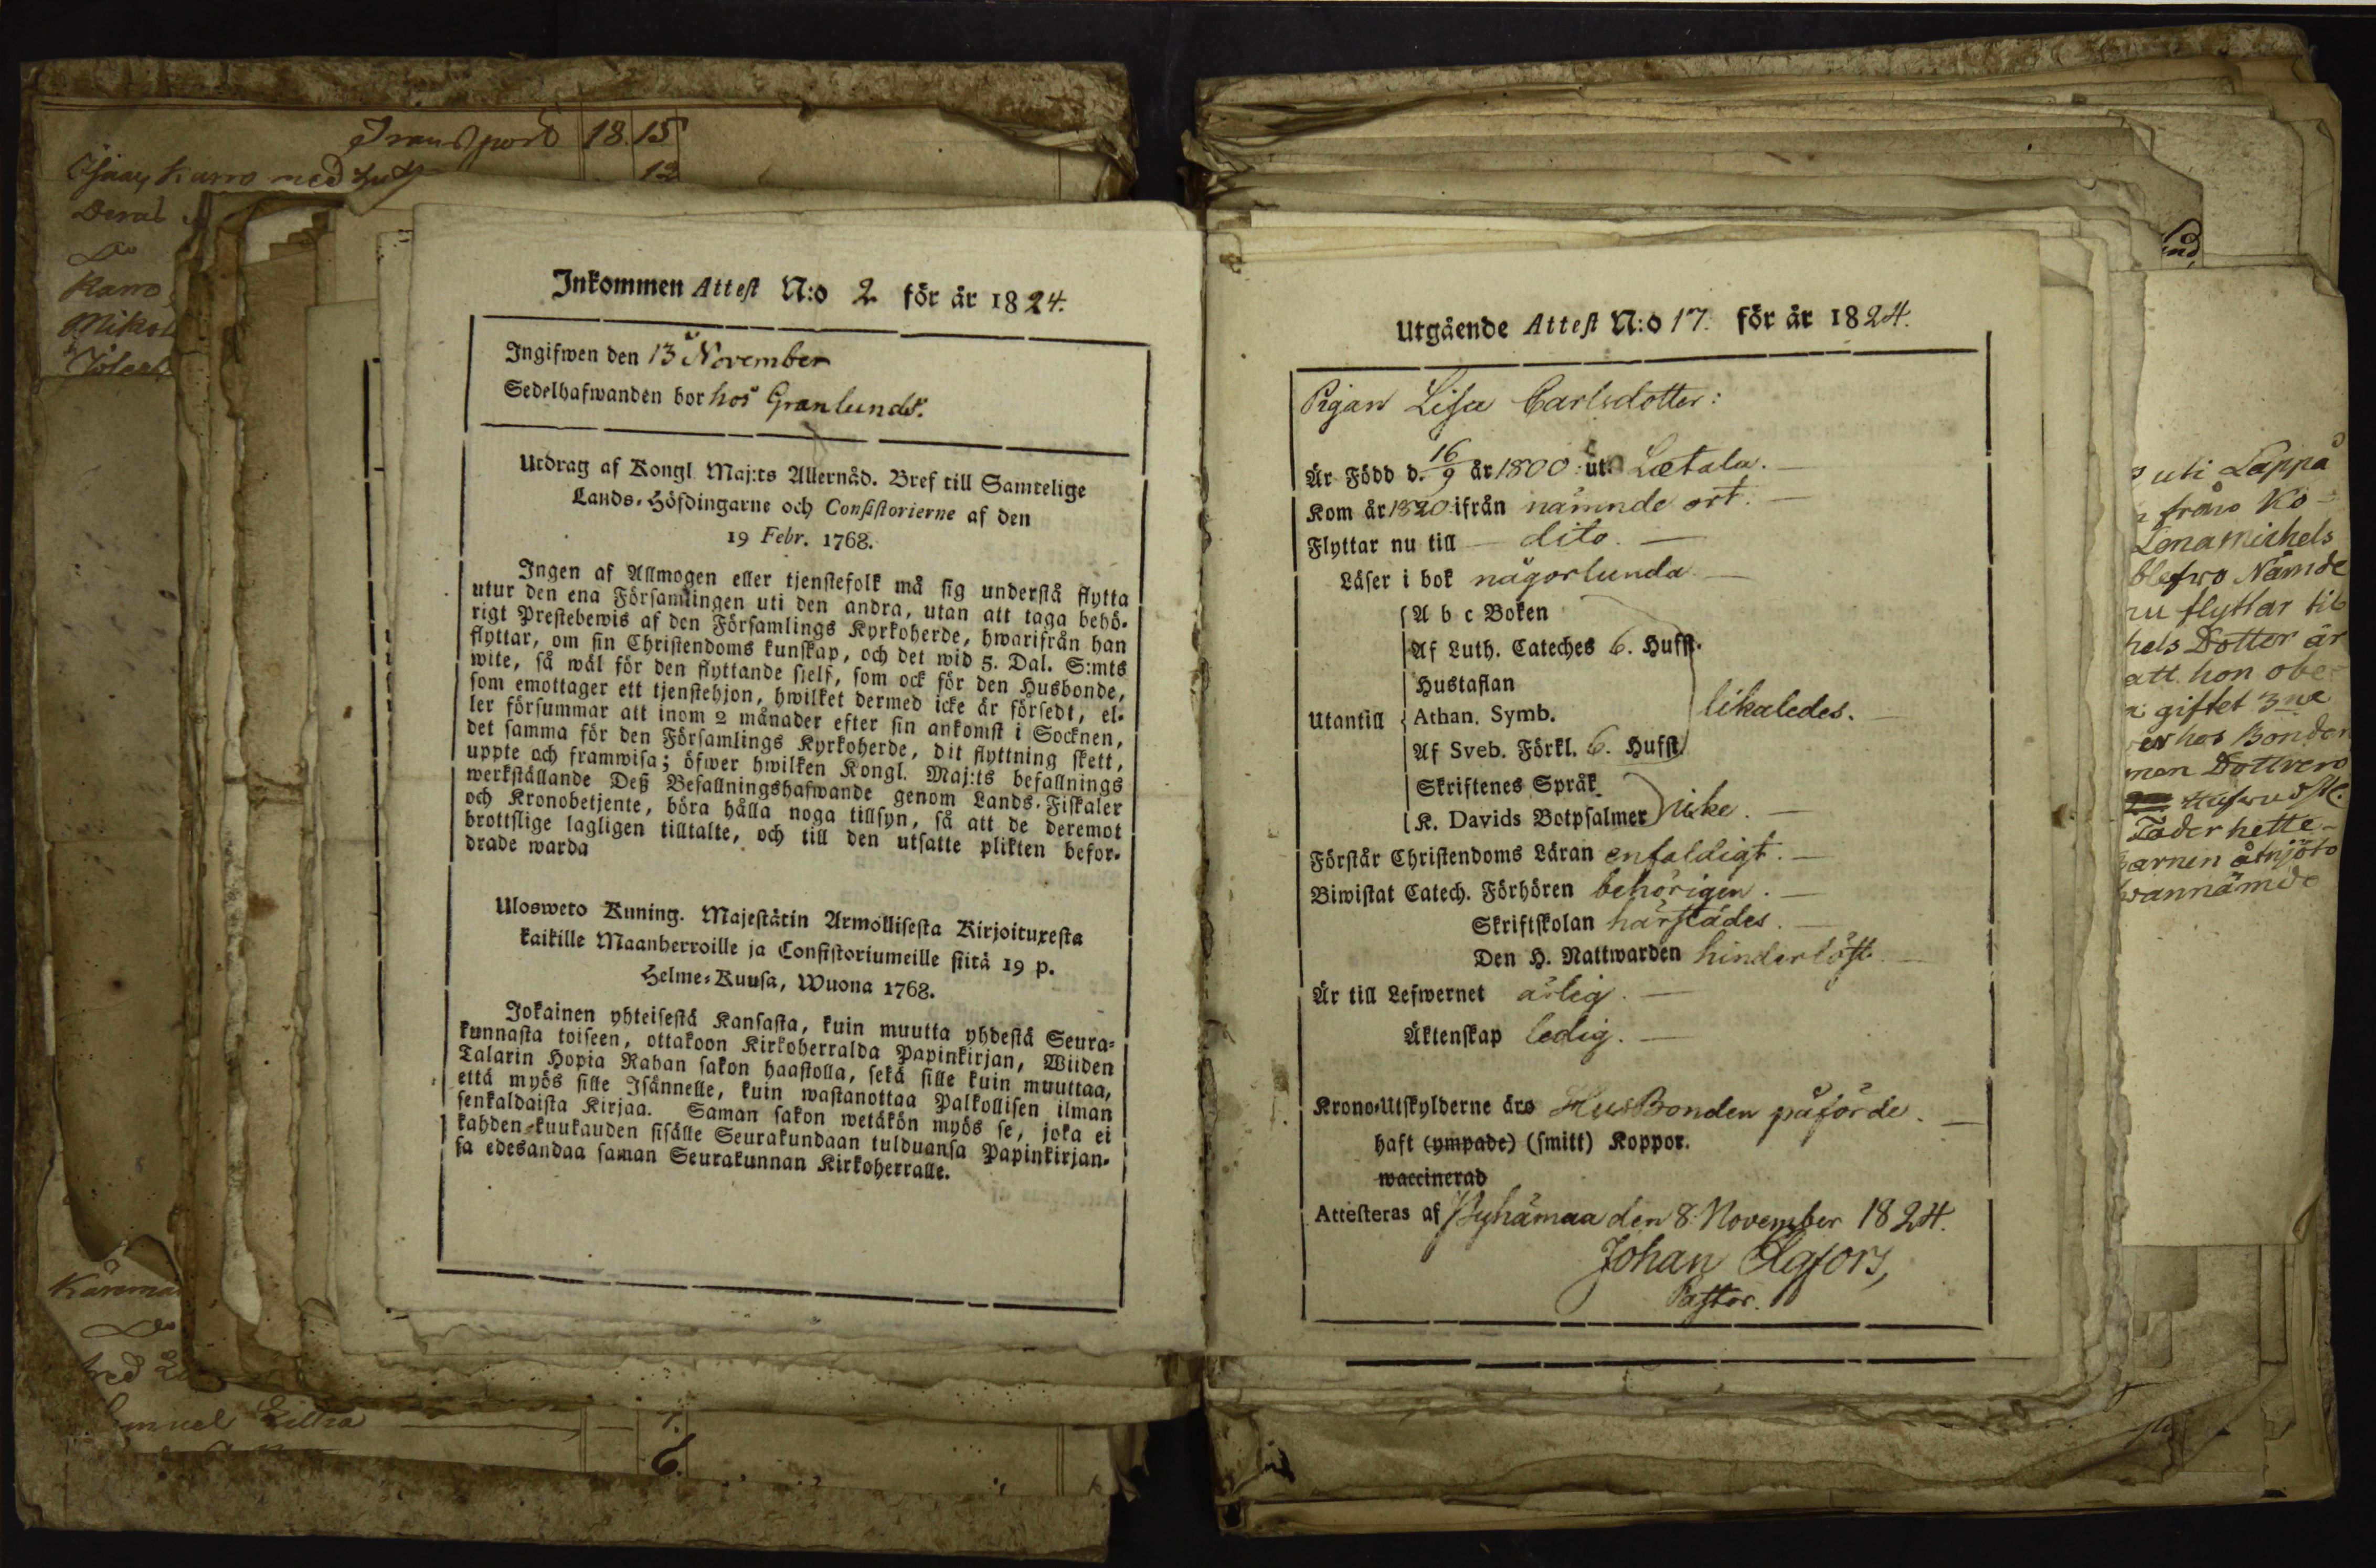 Transport 18. 15
med 12
Karro
Inkommen Attest N:o 2 för år 1824.
Ingifwen den 13 November
Sedelhafwanden bor hos Granlunds.
Utdrag af Kongl Maj:ts Allernåd. Bref till Samtelige
Lands-Höfdingarne och Consistorierne af den
19 Febr. 1768.
Ingen af Allmogen eller tjenstefolk må sig understå flytta
utur den ena Församlingen uti den andra, utan att taga behö-
rigt Prestebewis af den Församlings Kyrkoherde, hwarifrån han
flyttar, om sin Christendoms kunskap, och det wid 5. Dal. S:mts
wite, så wäl för den flyttande sjelf, som ock för den Husbonde,
som emottager ett tjenstehjon, hwilket dermed icke är försedt, el-
ler försummar att inom 2 månader efter sin ankomst i Socknen,
det samma för den Församlings Kyrkoherde, dit flyttning skett,
uppte och framwisa; öfwer hwilken Kongl. Maj:ts befallnings
werkställande Deß Befallningshafwande genom Lands-Fiskaler
och Kronobetjente, böra hålla noga tillsyn, så att de deremot
brottslige lagligen tilltalte, och till den utsatte plikten befor-
drade warda
Ulosweto Kuning. Majestätin Armollisesta Kirjoituxesta
kaikille Maanherroille ja Consistoriumeille siitä 19 p.
Helme-Kuusa, Wuona 1768.
Jokainen yhteisestä Kansasta, kuin muutta yhdestä Seura-
kunnasta toiseen, ottakoon Kirkoherralda Papinkirjan, Wiiden
Talarin Hopia Rahan sakon haastolla, sekä sille kuin muuttaa,
että myös sille Isännelle, kuin wastanottaa Palkollisen ilman
senkaldaista Kirjaa. Saman sakon wetäkön myös se, joka ei
kahden kuukauden sisälle Seurakundaan tulduansa Papinkirjan-
sa edesandaa saman Seurakunnan Kirkoherralle.
6.
Utgående Attest N:o 17. för år 1824.
Pigan Lisa Carlsdotter:
Är Född d. 16/9 år 1800 ut Letala.
Kom år 1820 ifrån nämnde ort.
Flyttar nu till dito.
Läser i bok någorlunda.
A b c Boken
Af Luth. Cateches 6. Hufst.
Hustaflan
Utantill Athan. Symb. likaledes.
Af Sveb. Förkl. 6. Hufst.
Skriftenes Språk
K. Davids Botpsalmer icke.
Förstår Christendoms Läran enfaldigt.
Biwistat Catech. Förhören behörigen.
Skriftskolan härstädes.
Den H. Nattwarden hinderlöst.
Är till Lefwernet ärlig.
Äktenskap ledig.
Krono-Utskylderne äro HusBonden påförde.
haft (ympade) (smitt) Koppor.
waccinerad
Attesteras af Pyhämaa den 8. November 1824.
Johan Agfors,
Pastor.
uti Lappå
från Ko-
Lena Michels
blefwo Nämde
nu flyttar till
hels Dotter är
att hon obe-
giftet 3ne
hos Bonden
men
Fader hette
arnen åtnjöto
wannämde